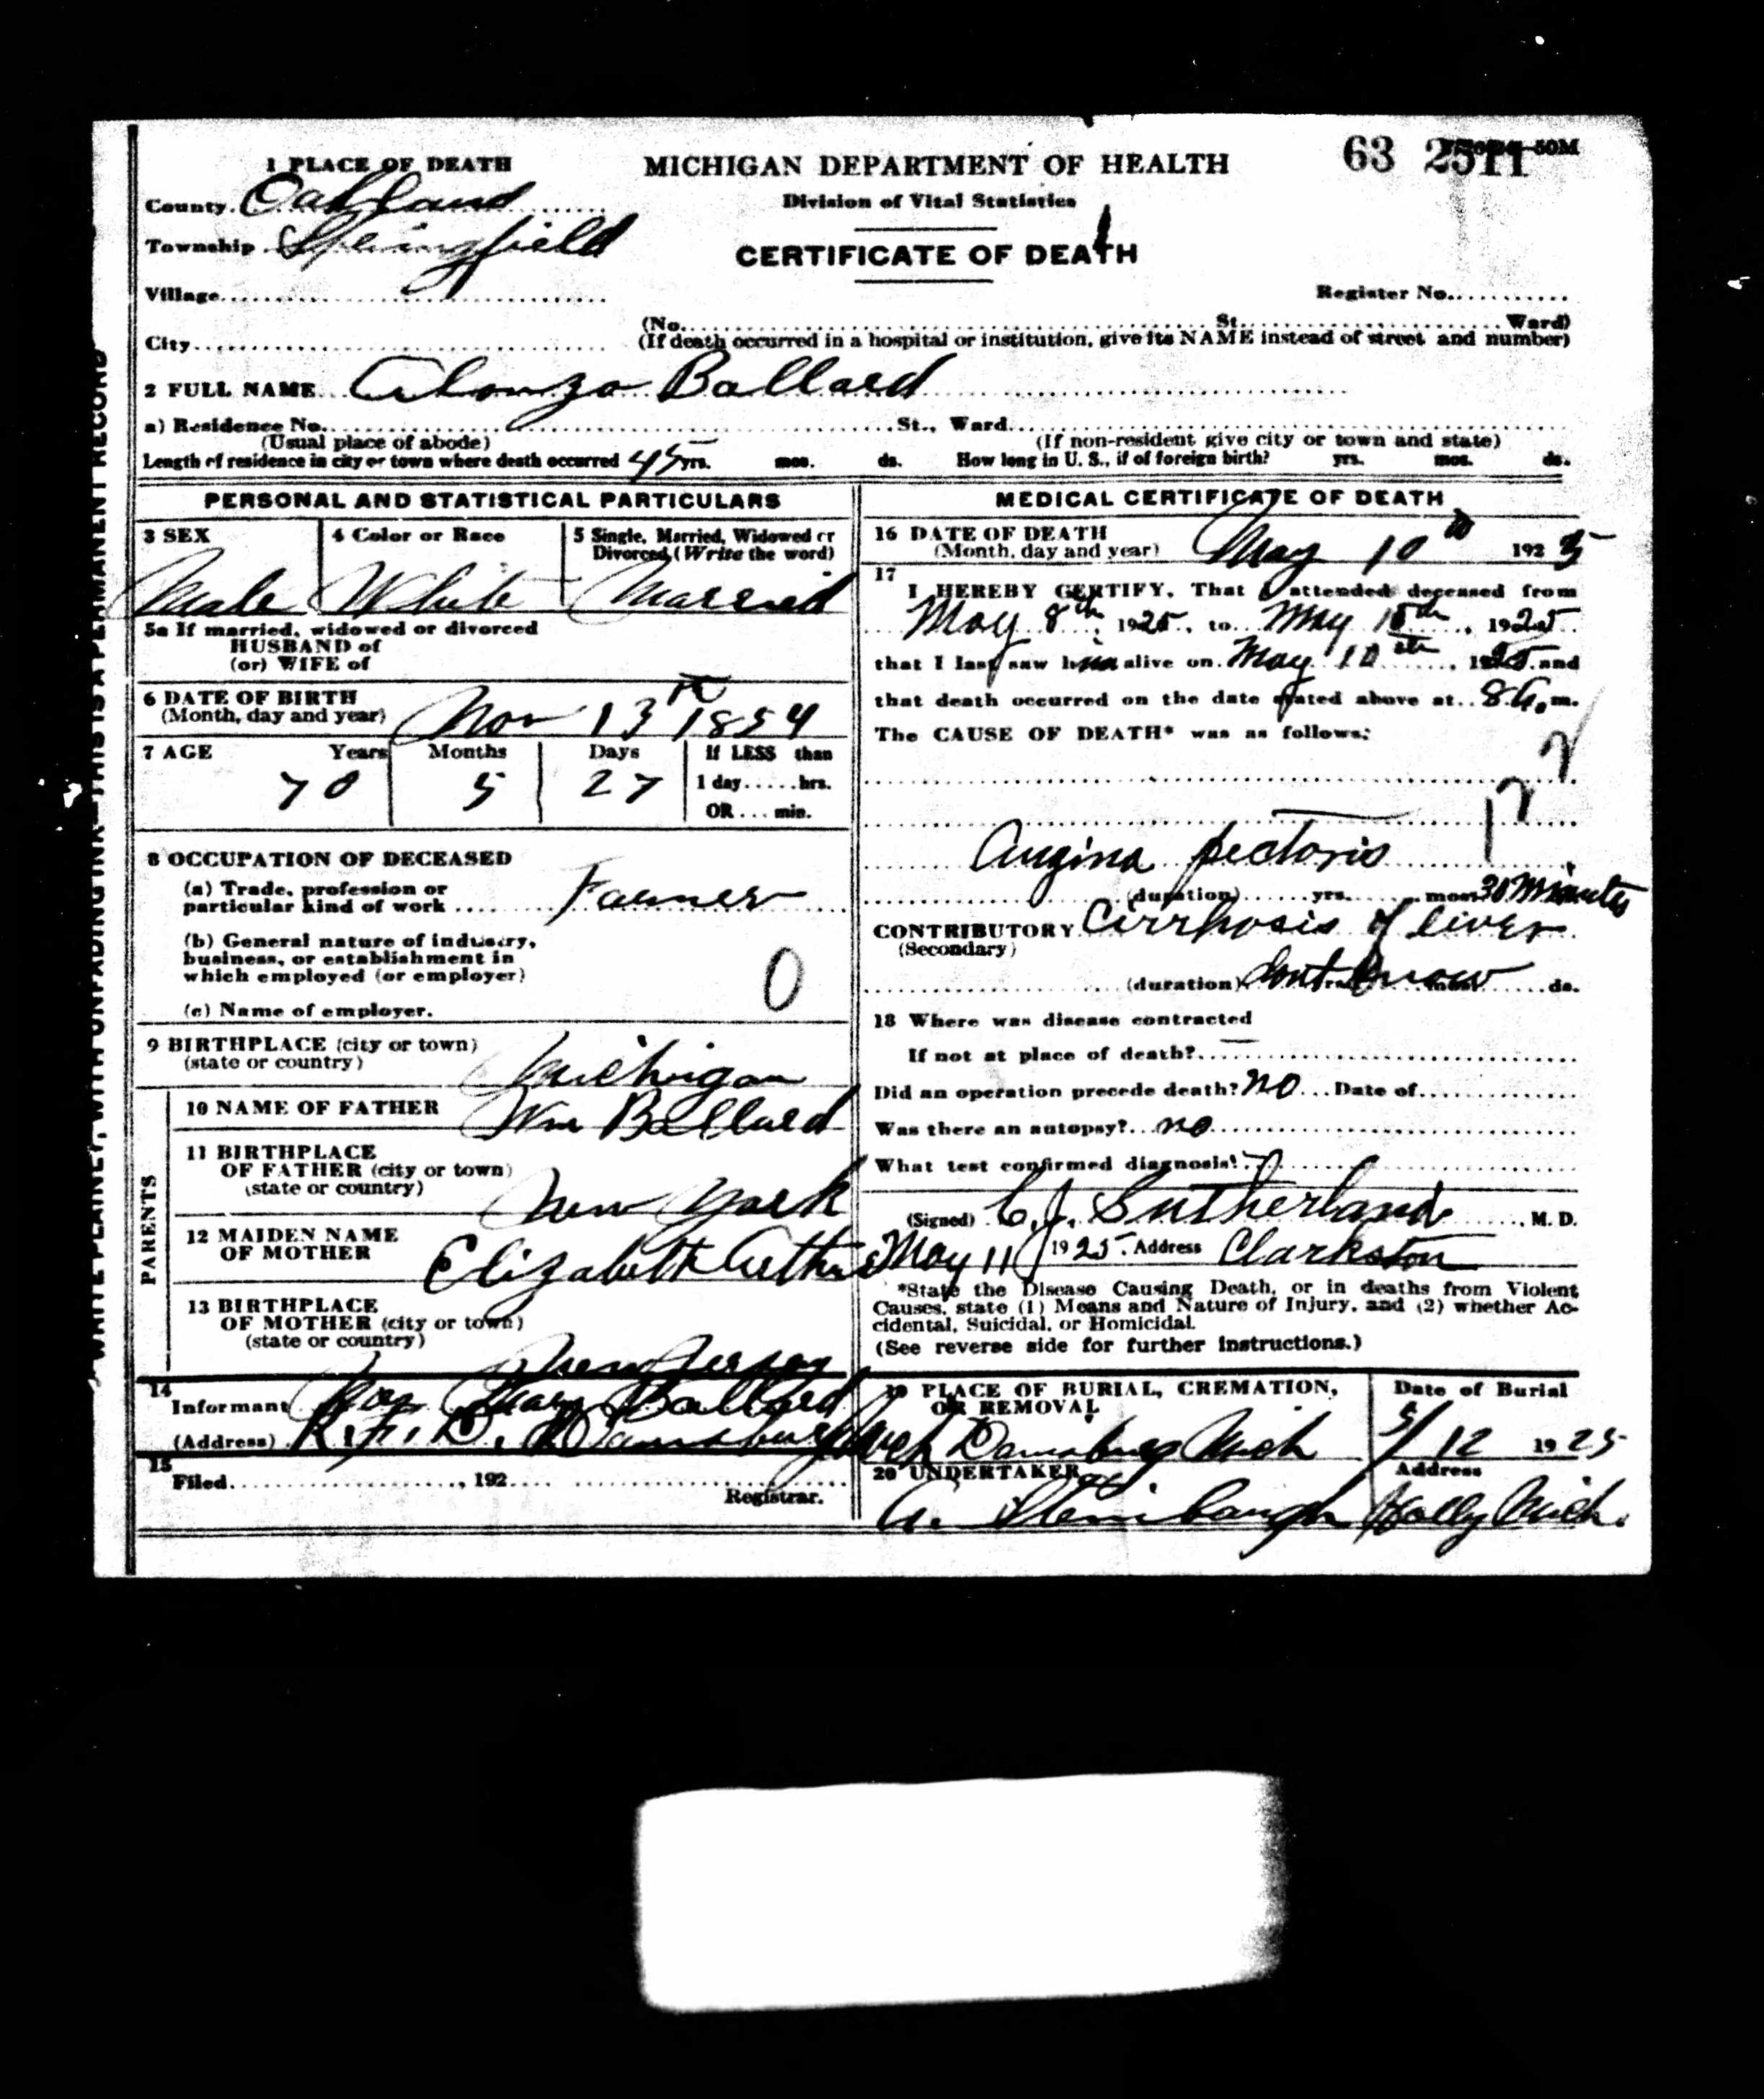 63 2511
1 PLACE OF DEATH
MICHIGAN DEPARTMENT OF HEALTH
Division of Vital Statistics
CERTIFICATE OF DEATH
County Oakland
Township Springfield
Village
Register No.
City
(No. St. Ward)
(If death occurred in a hospital or institution, give its NAME instead of street and number)
2 FULL NAME Alonzo Ballard
a) Residence No. St., Ward
(Usual place of abode) (If non-resident give city or town and state)
Length of residence in city or town where death occurred 45 yrs. mos. ds. How long in U. S., if of foreign birth? yrs. mos. ds.
PERSONAL AND STATISTICAL PARTICULARS
3 SEX 4 Color or Race 5 Single, Married, Widowed or
Divorced (Write the word)
Male White Married
5a If married, widowed or divorced
HUSBAND of
(or) WIFE of
6 DATE OF BIRTH
(Month, day and year) Nov 13th 1854
7 AGE Years Months Days If LESS than
70 5 27 1 day......hrs.
OR ... min.
8 OCCUPATION OF DECEASED
(a) Trade, profession or
particular kind of work Farmer
(b) General nature of industry,
business, or establishment in
which employed (or employer) 0
(c) Name of employer.
9 BIRTHPLACE (city or town)
(state or country) Michigan
PARENTS
10 NAME OF FATHER Wm Ballard
11 BIRTHPLACE
OF FATHER (city or town)
(state or country) New York
12 MAIDEN NAME
OF MOTHER Elizabeth
13 BIRTHPLACE
OF MOTHER (city or town)
(state or country) New Jersey
14
Informant Mrs Mary Ballard
(Address) R.F.D. Davisburg Mich
15
Filed , 192
Registrar.
MEDICAL CERTIFICATE OF DEATH
16 DATE OF DEATH
(Month, day and year) May 10th 1925
17
I HEREBY CERTIFY, That I attended deceased from
May 8th, 1925, to May 10th, 1925
that I last saw him alive on May 10th, 1925 and
that death occurred on the date stated above at 8 A. m.
The CAUSE OF DEATH* was as follows:
Angina pectoris
(duration) yrs. mos. 30 minutes
CONTRIBUTORY Cirrhosis of liver
(Secondary)
(duration) dont know ds.
18 Where was disease contracted
If not at place of death?
Did an operation precede death? no Date of
Was there an autopsy? no
What test confirmed diagnosis?
(Signed) C. J. Sutherland, M. D.
May 11 1925. Address Clarkston
*State the Disease Causing Death, or in deaths from Violent
Causes, state (1) Means and Nature of Injury, and (2) whether Ac-
cidental, Suicidal, or Homicidal.
(See reverse side for further instructions.)
19 PLACE OF BURIAL, CREMATION, Date of Burial
OR REMOVAL
Davisburg Mich 5/12 1925
20 UNDERTAKER Address
Holly Mich.